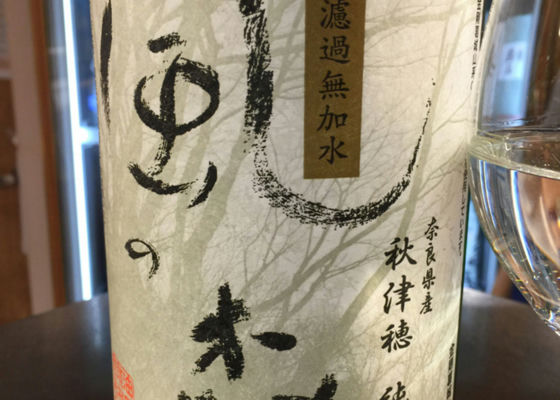 濾過無加水
奈良県産
秋津穂 純
風の森